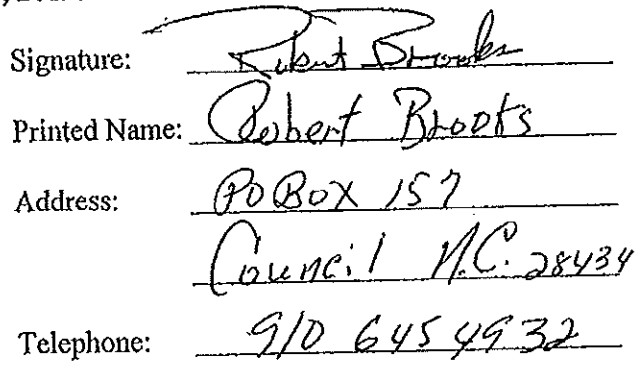 Signature: Robert Brooks
Printed Name: Robert Brooks
Address: PO Box 157
Council N.C. 28434
Telephone: 910 645 4932